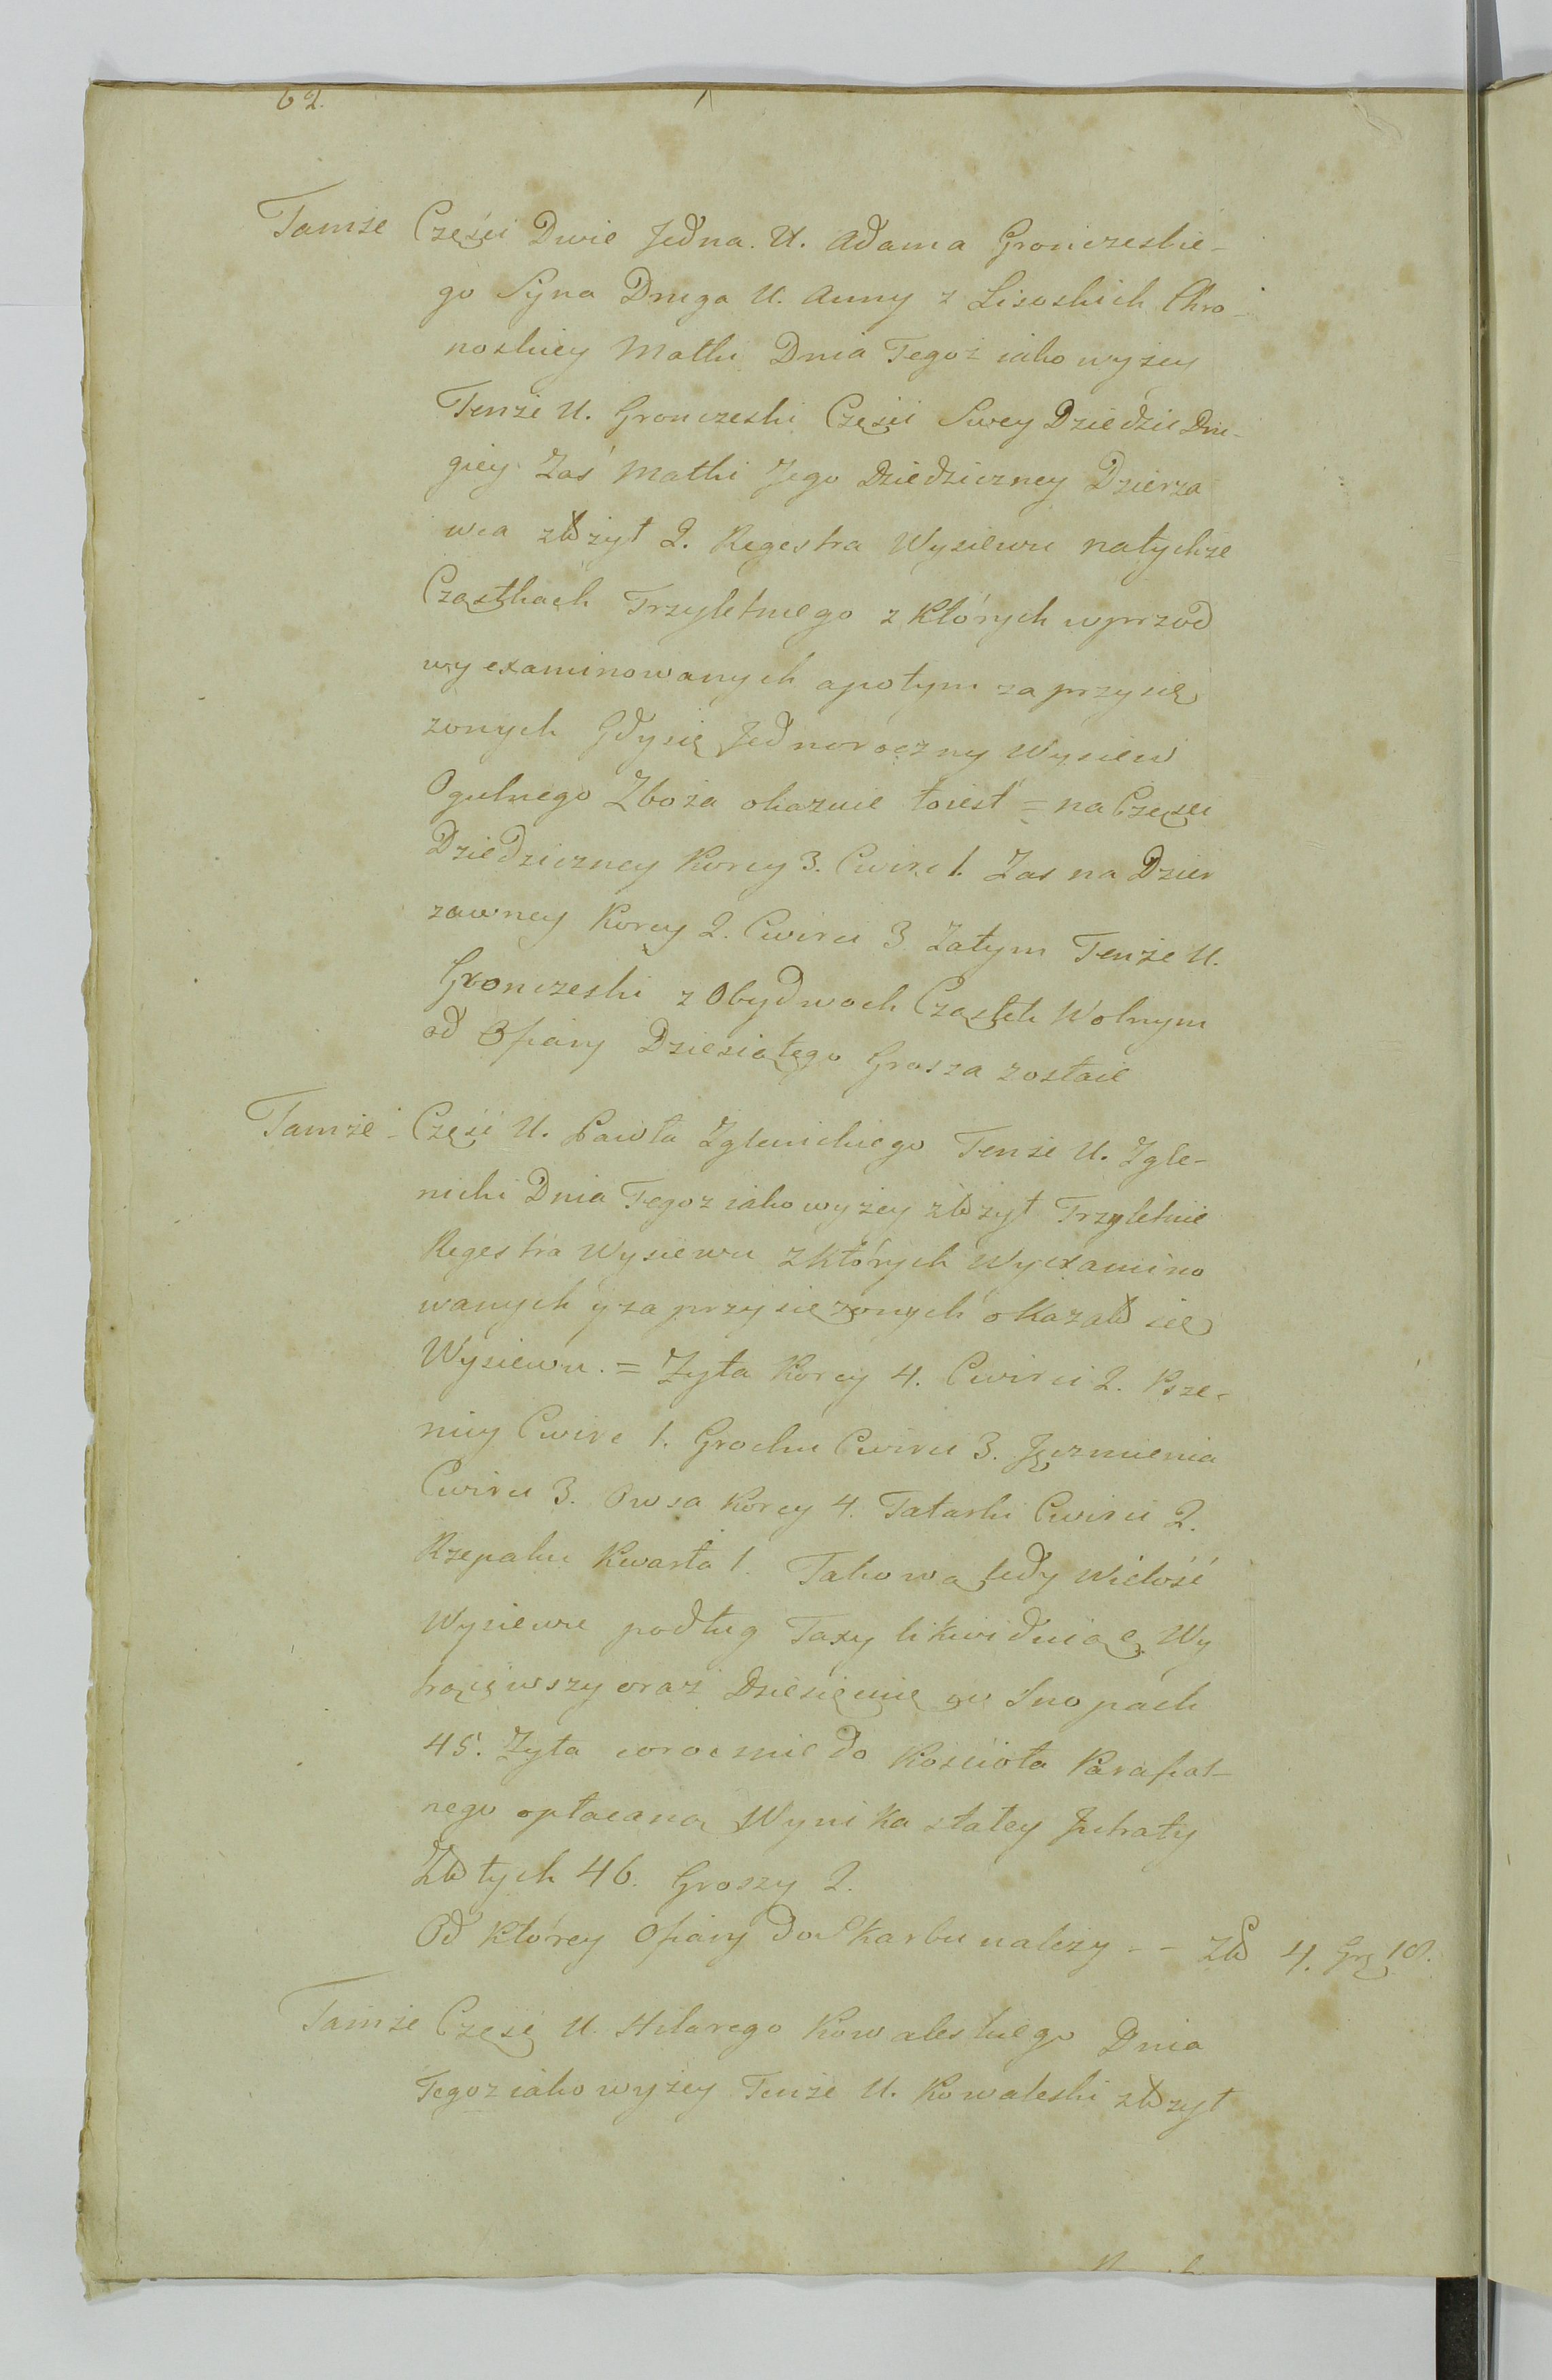 62.
Tamże Części Dwie Jedna. U. Adama Gronczeskie-
go Syna Druga U. Anny z Lisoskich Chro-
noskiey Matki Dnia Tegoż iako wyżey
Tenże U. Gronczeski Części Swey Dziedzic Dru-
giey Zaś Matki Jego Dziedziczney Dzierza
wca złożył 2. Regestra Wysiewu natychże
Cząstkach Trzyletniego z Których wprzod
wyexaminowanych apotym zaprzysię
zonych Gdysię Jednoroczny Wysiew
Ogulnego Zboża okazuie toiest = na Części
Dziedziczney Korcy 3. Cwirc 1. Zas na Dzier
zawney Korcy 2. Cwirci 3 Zatym Tenże U.
Gronczeski z Obydwoch Cząstek Wolnym
od Ofiary Dziesiątego Grosza zostaie
Tamże - Część U. Pawła Zglenickiego Tenże U. Zgle-
nicki Dnia Tegoz iako wyżey złożył Trzyletnie
Regestra Wysiewu z Których Wyexamino
wanych y zaprzysięzonych oKazało się
Wysiewu. = Zyta Korcy 4. Cwirci 2. Psze-
nicy Cwirc 1. Grochu Cwirci 3. Jęczmienia
Cwirci 3. Owsa Korcy 4. Tatarki Cwirci 2.
Rzepaku Kwarta 1. Takową tedy Wielość
Wysiewu podług Taxy likwiduiąc Wy
trąciwszy oraz Dziesięcinę w Snopach
45. Zyta corocznie do Kościoła Parafial-
nego opłacaną WyniKa stałey Jntraty
Złotych 46. Groszy 2.
Od Którey Ofiary do SKarbu należy - - Zło 4. Grz 18.
Tamże Część U. Hilarego Kowaleskiego Dnia
Tegoz iako wyżey Tenże U. Kowaleski złożył